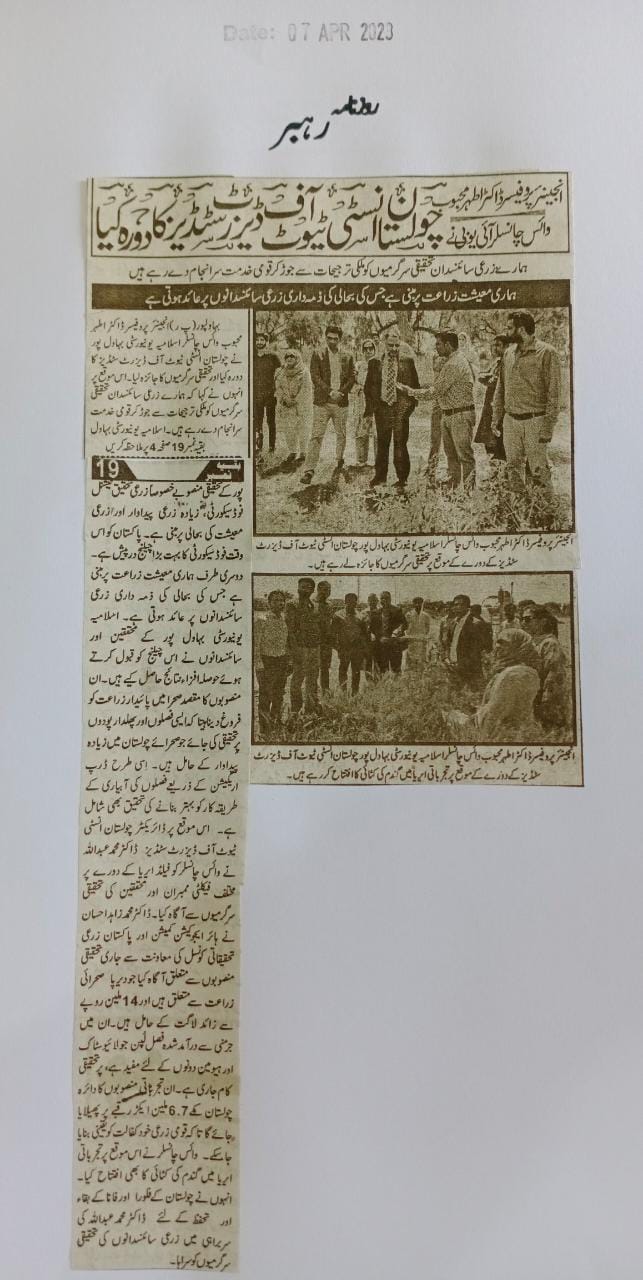 Date: 07 APR 2023
روزنامہ
رہبر
انجینئر پروفیسر ڈاکٹر اطہر محبوب
وائس چانسلر آئی یو بی نے
چولستان انسٹی ٹیوٹ آف ڈیزرٹ سٹڈیز کا دورہ کیا
ہمارے زرعی سائنسدان تحقیقی سرگرمیوں کو ملکی ترجیحات سے جوڑ کر قومی خدمت سرانجام دے رہے ہیں
ہماری معیشت زراعت پر مبنی ہے جس کی بحالی کی ذمہ داری زرعی سائنسدانوں پر عائد ہوتی ہے
بہاولپور (پ ر) انجینئر پروفیسر ڈاکٹر اطہر
محبوب وائس چانسلر اسلامیہ یونیورسٹی بہاول پور
نے چولستان انسٹی ٹیوٹ آف ڈیزرٹ سٹڈیز کا
دورہ کیا اور تحقیقی سرگرمیوں کا جائزہ لیا۔ اس موقع پر
انہوں نے کہا کہ ہمارے زرعی سائنسدان تحقیقی
سرگرمیوں کو ملکی ترجیحات سے جوڑ کر قومی خدمت
سرانجام دے رہے ہیں۔ اسلامیہ یونیورسٹی بہاول
بقیہ نمبر 19 صفحہ 4 پر ملاحظہ کریں
بقیہ نمبر 19
پور کے تحقیقی منصوبے خصوصاً زرعی تحقیق نیشنل
فوڈ سیکورٹی، زیادہ زرعی پیداوار اور زرعی
معیشت کی بحالی پر مبنی ہے۔ پاکستان کو اس
وقت فوڈ سیکورٹی کا بہت بڑا چیلنج درپیش ہے۔
دوسری طرف ہماری معیشت زراعت پر مبنی
ہے جس کی بحالی کی ذمہ داری زرعی
سائنسدانوں پر عائد ہوتی ہے۔ اسلامیہ
یونیورسٹی بہاول پور کے محققین اور
سائنسدانوں نے اس چیلنج کو قبول کرتے
ہوئے حوصلہ افزاء نتائج حاصل کیے ہیں۔ ان
منصوبوں کا مقصد صحرا میں پائیدار زراعت کو
فروغ دینا ہے تاکہ ایسی فصلوں اور پھلدار پودوں
پر تحقیق کی جائے جو صحرائے چولستان میں زیادہ
پیداوار کے حامل ہیں۔ اسی طرح ڈرپ
اریگیشن کے ذریعے فصلوں کی آبیاری کے
طریقہ کار کو بہتر بنانے کی تحقیق بھی شامل
ہے۔ اس موقع پر ڈائریکٹر چولستان انسٹی
ٹیوٹ آف ڈیزرٹ سٹڈیز ڈاکٹر محمد عبداللہ
نے وائس چانسلر کو فیلڈ ایریا کے دورے پر
مختلف فیکلٹی ممبران اور محققین کی تحقیقی
سرگرمیوں سے آگاہ کیا۔ ڈاکٹر محمد زاہد احسان
نے ہائر ایجوکیشن کمیشن اور پاکستان زرعی
تحقیقاتی کونسل کی معاونت سے جاری تحقیقی
منصوبوں سے متعلق آگاہ کیا جو دیرپا صحرائی
زراعت سے متعلق ہیں اور 14 ملین روپے
سے زائد لاگت کے حامل ہیں۔ ان میں
جرمنی سے درآمد شدہ فصل لیپن جو لائیوسٹاک
اور ہیومن دونوں کے لئے مفید ہے، پر تحقیقی
کام جاری ہے۔ ان تجرباتی منصوبوں کا دائرہ
چولستان کے 6.7 ملین ایکڑ رقبے پر پھیلایا
جائے گا تاکہ قومی زرعی خود کفالت کو یقینی بنایا
جا سکے۔ وائس چانسلر نے اس موقع پر تجرباتی
ایریا میں گندم کی کٹائی کا بھی افتتاح کیا۔
انہوں نے چولستان کے فلورا اور فانا کے بقاء
اور تحفظ کے لئے ڈاکٹر محمد عبداللہ کی
سربراہی میں زرعی سائنسدانوں کی تحقیقی
سرگرمیوں کو سراہا۔
انجینئر پروفیسر ڈاکٹر اطہر محبوب وائس چانسلر اسلامیہ یونیورسٹی بہاول پور چولستان انسٹی ٹیوٹ آف ڈیزرٹ
سٹڈیز کے دورے کے موقع پر تحقیقی سرگرمیوں کا جائزہ لے رہے ہیں۔
انجینئر پروفیسر ڈاکٹر اطہر محبوب وائس چانسلر اسلامیہ یونیورسٹی بہاول پور چولستان انسٹی ٹیوٹ آف ڈیزرٹ
سٹڈیز کے دورے کے موقع پر تجرباتی ایریا میں گندم کی کٹائی کا افتتاح کر رہے ہیں۔